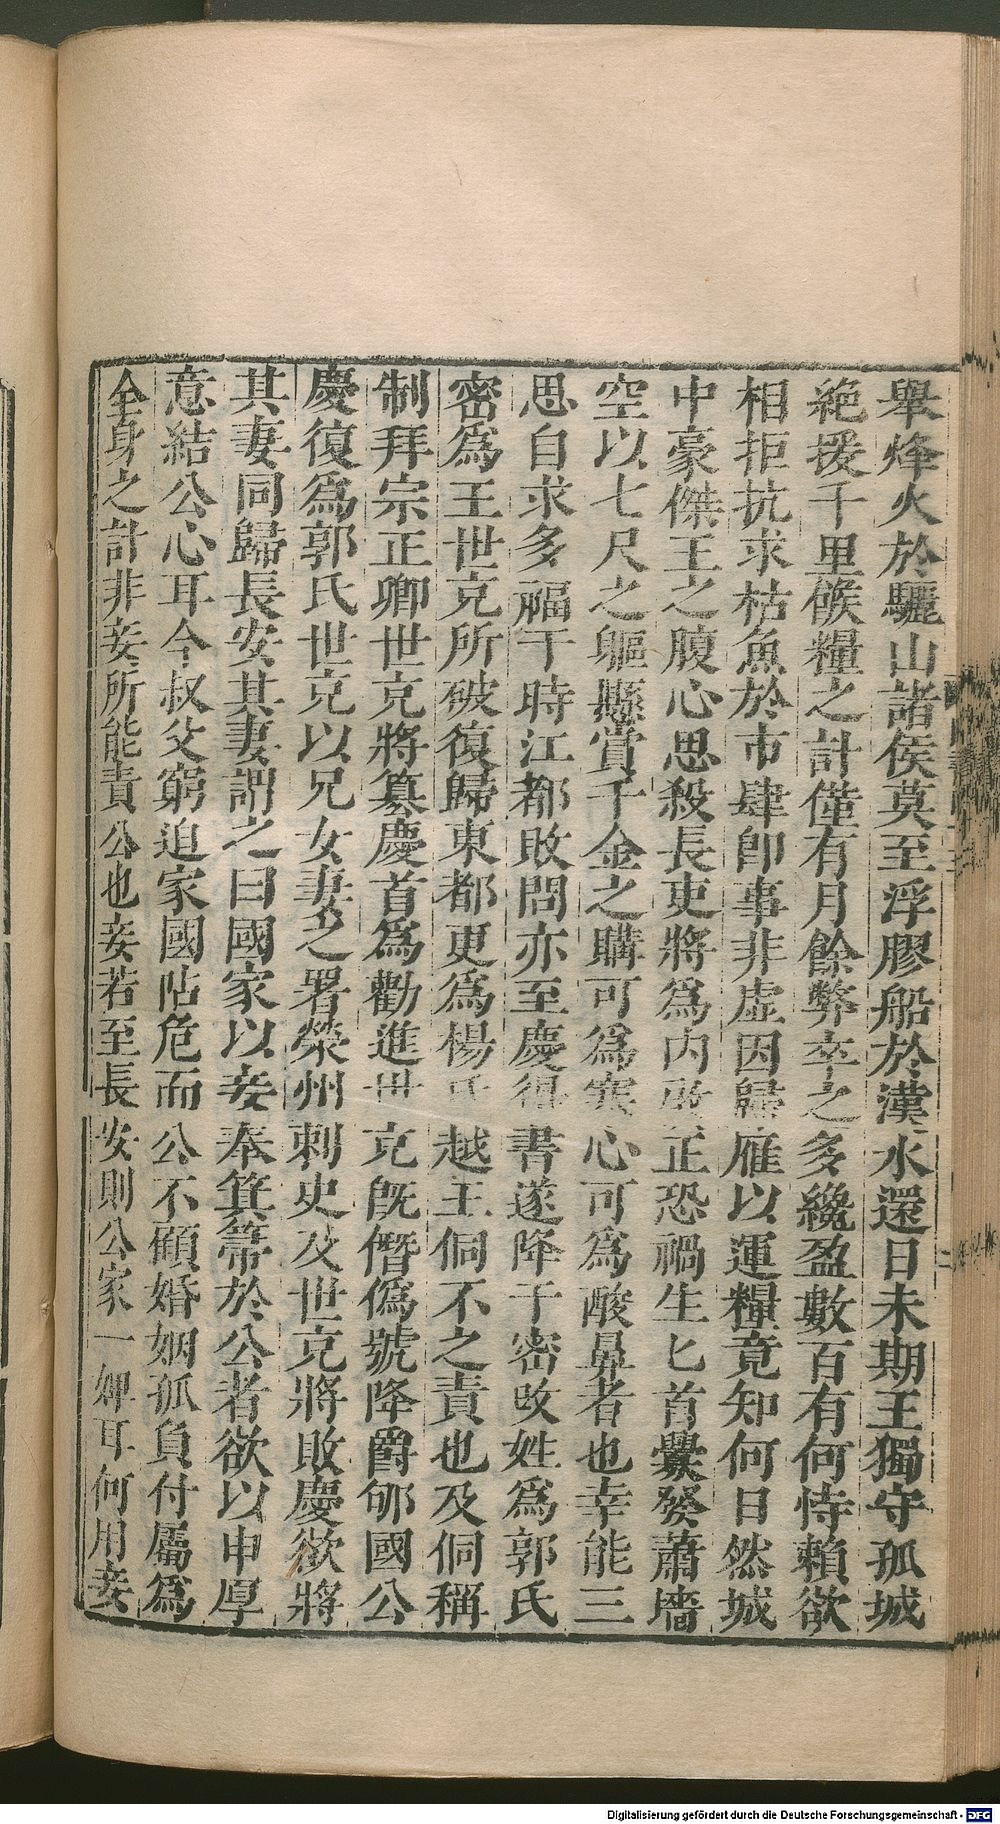 舉烽火於驪山諸侯莫至浮膠船於漢水還日未期王獨守孤城
絶援千里餱糧之計僅有月餘弊卒之多纔盈數百有何恃賴欲
相拒抗求枯魚於市肆即事非虛因歸雁以運糧竟知何日然城
中豪傑王之腹心思殺長吏將爲内啟正恐禍生匕首釁發蕭墻
空以七尺之軀懸賞千金之購可爲寒心可爲酸鼻者也幸能三
思自求多福于時江都敗問亦至慶得書遂降于密改姓爲郭氏
密爲王世克所破復歸東都更爲楊氏越王侗不之責也及侗稱
制拜宗正卿世克將篡慶首爲勸進世克既僭僞號降爵郇國公
慶復爲郭氏世克以兄女妻之署滎州刺史及世克將敗慶欲將
其妻同歸長安其妻謂之曰國家以妾奉箕箒於公者欲以申厚
意結公心耳今叔父窮迫家國阽危而公不顧婚姻孤負付屬爲
全身之計非妾所能責公也妾若至長安則公家一婢耳何用妾
Digitalisierung gefördert durch die Deutsche Forschungsgemeinschaft - DFG